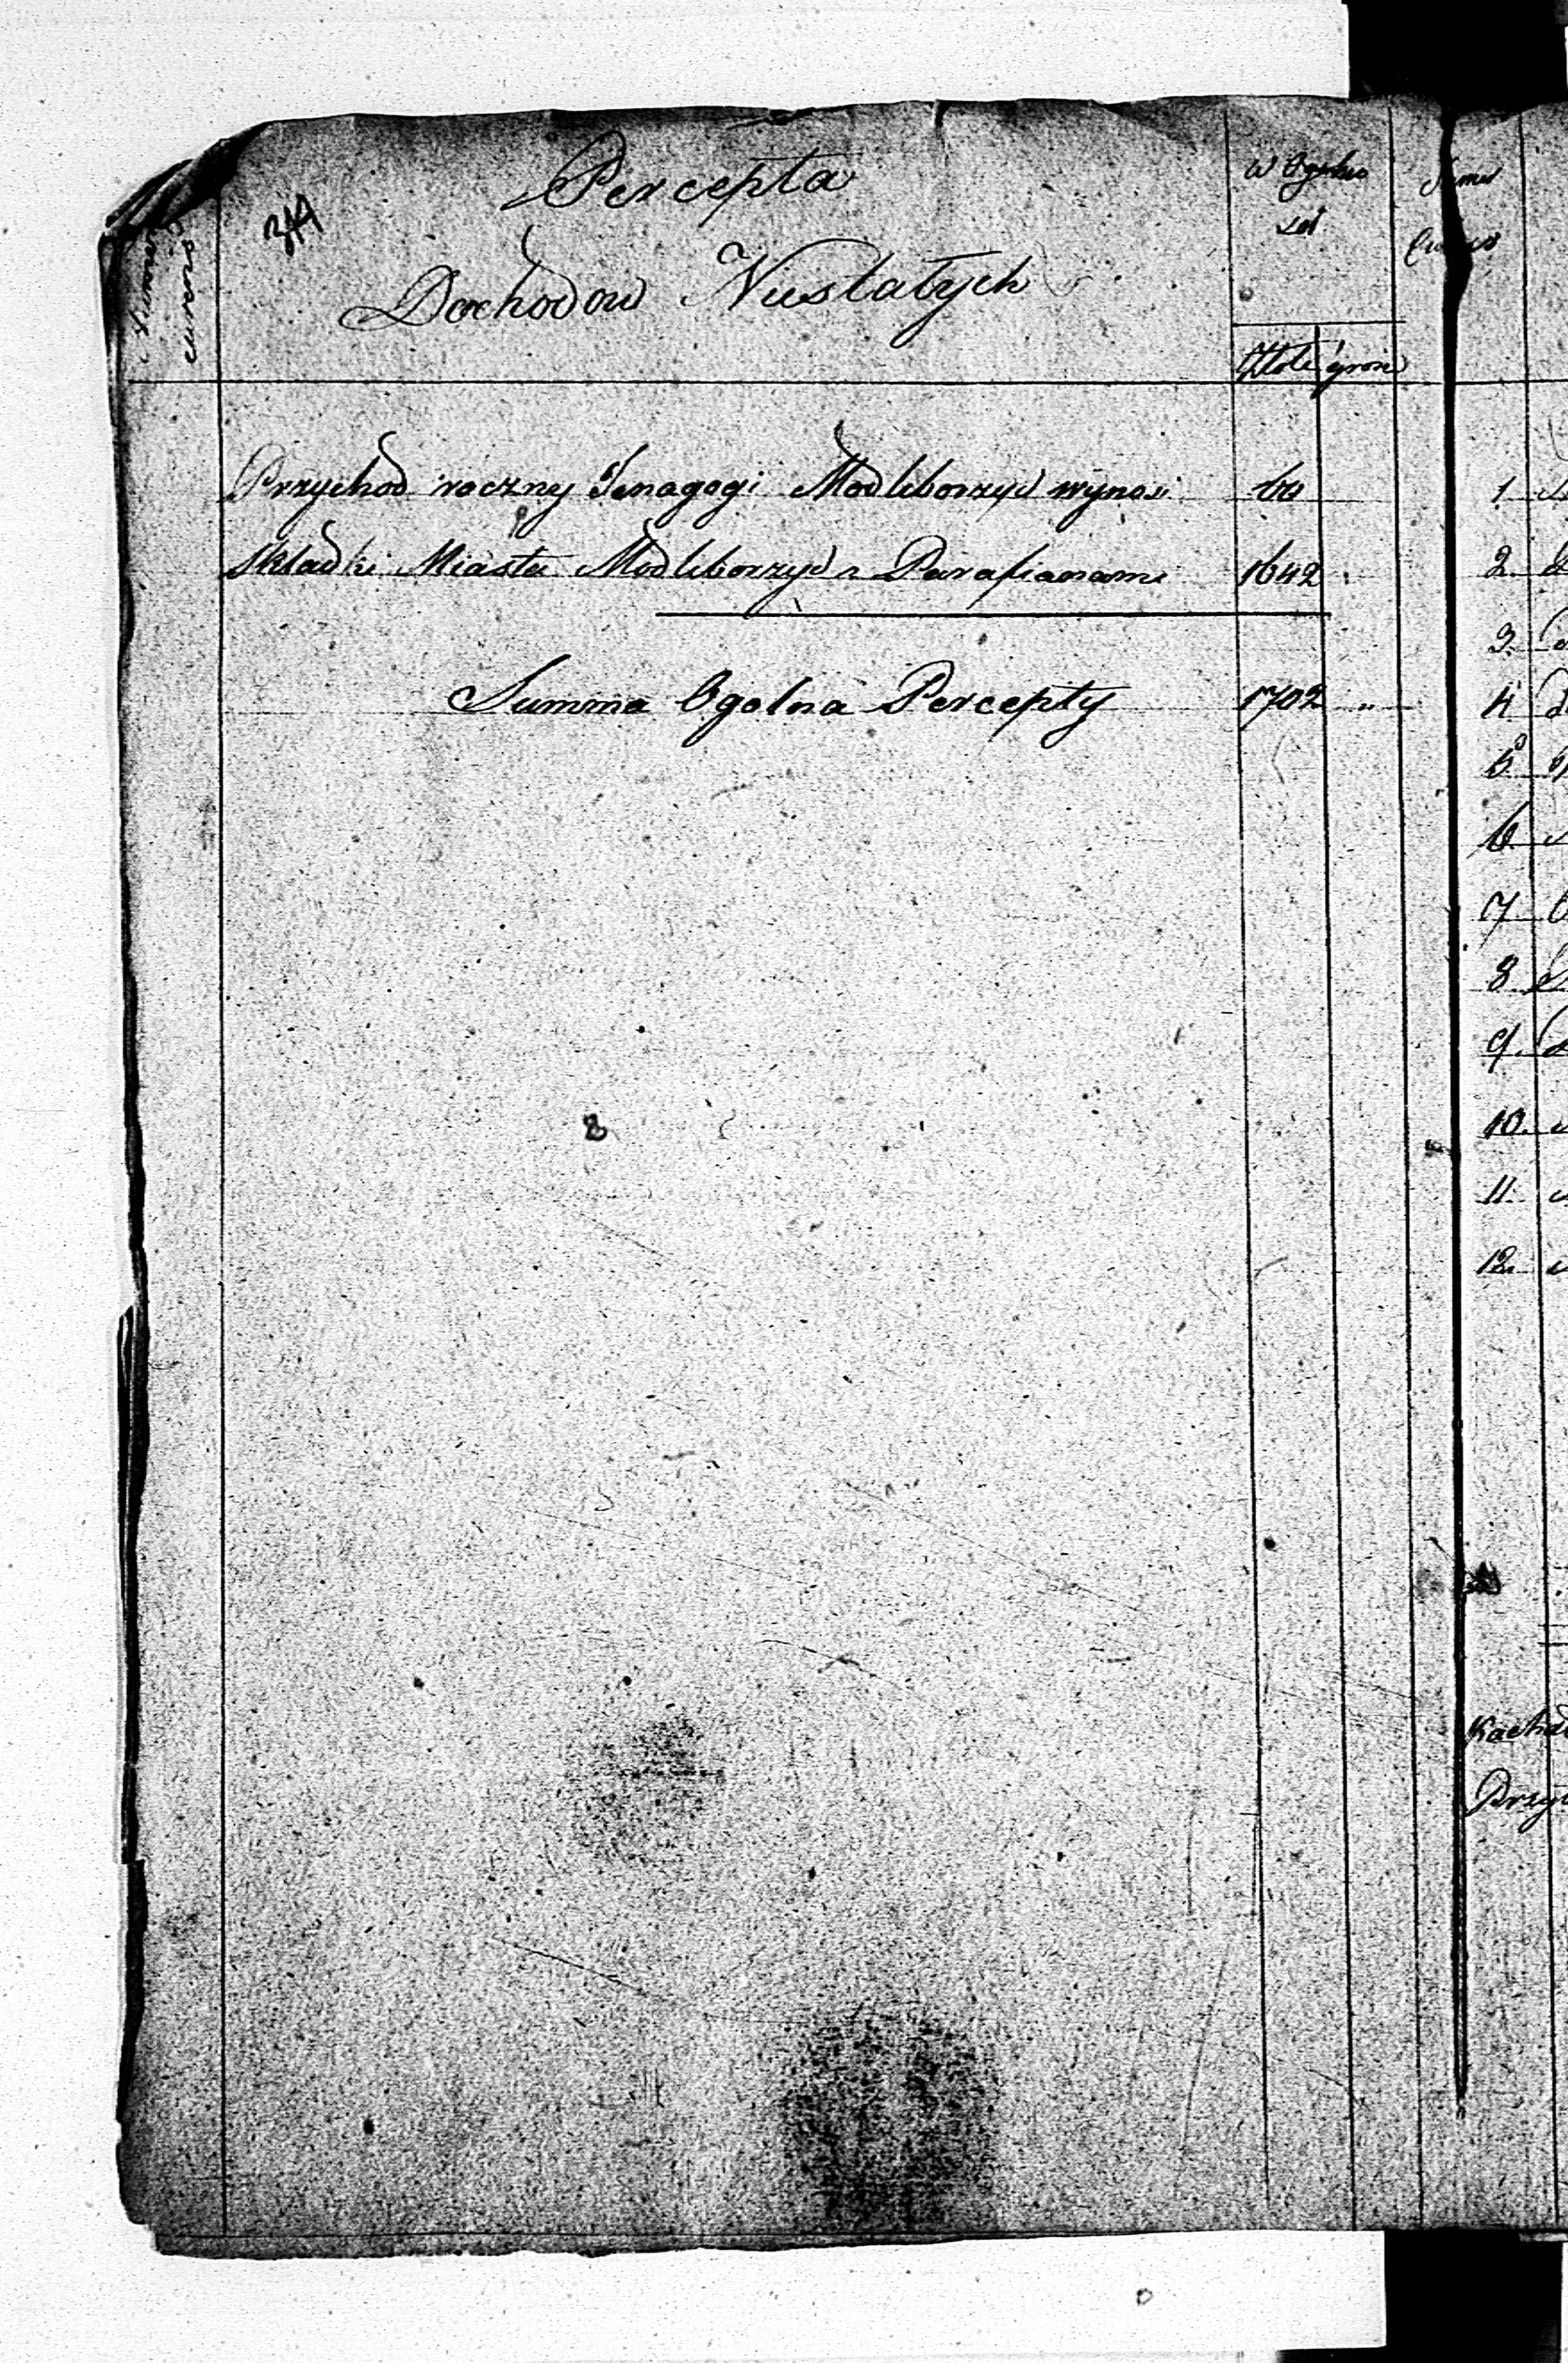 Numer
curens
344
Percepta
Dochodow Niestałych
W Ogulee
Zło! grosze
Przychod roczny Senagogi Modliborzyc wynosi 60
Składki Miasta Modliborzyc z Parafianami 1642
Summa Ogolna Percepty 1702 "
1
2
3.
4
5
6
7
8
9.
10.
11.
12.